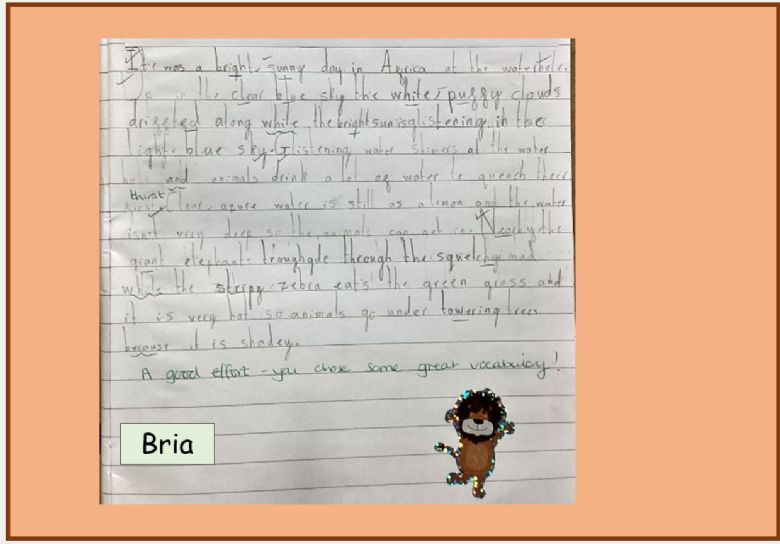 It was a bright, sunny day in Africa at the waterhole.
in the clear blue sky the white, puffy clouds
drifted along while the bright sun is glistening in the
light blue sky. Glistening water shimers at the water
hole and animals drink a lot of water to quench their
thirst
Clear, azure water is still as a lemon and the water
isn't very deep so the animals can get in. Nearby the
giant elephant through the squelchy mud
while the stripy zebra eats the green grass and
it is very hot so animals go under towering trees
because it is shadey.
A good effort - you chose some great vocabulary!
Bria